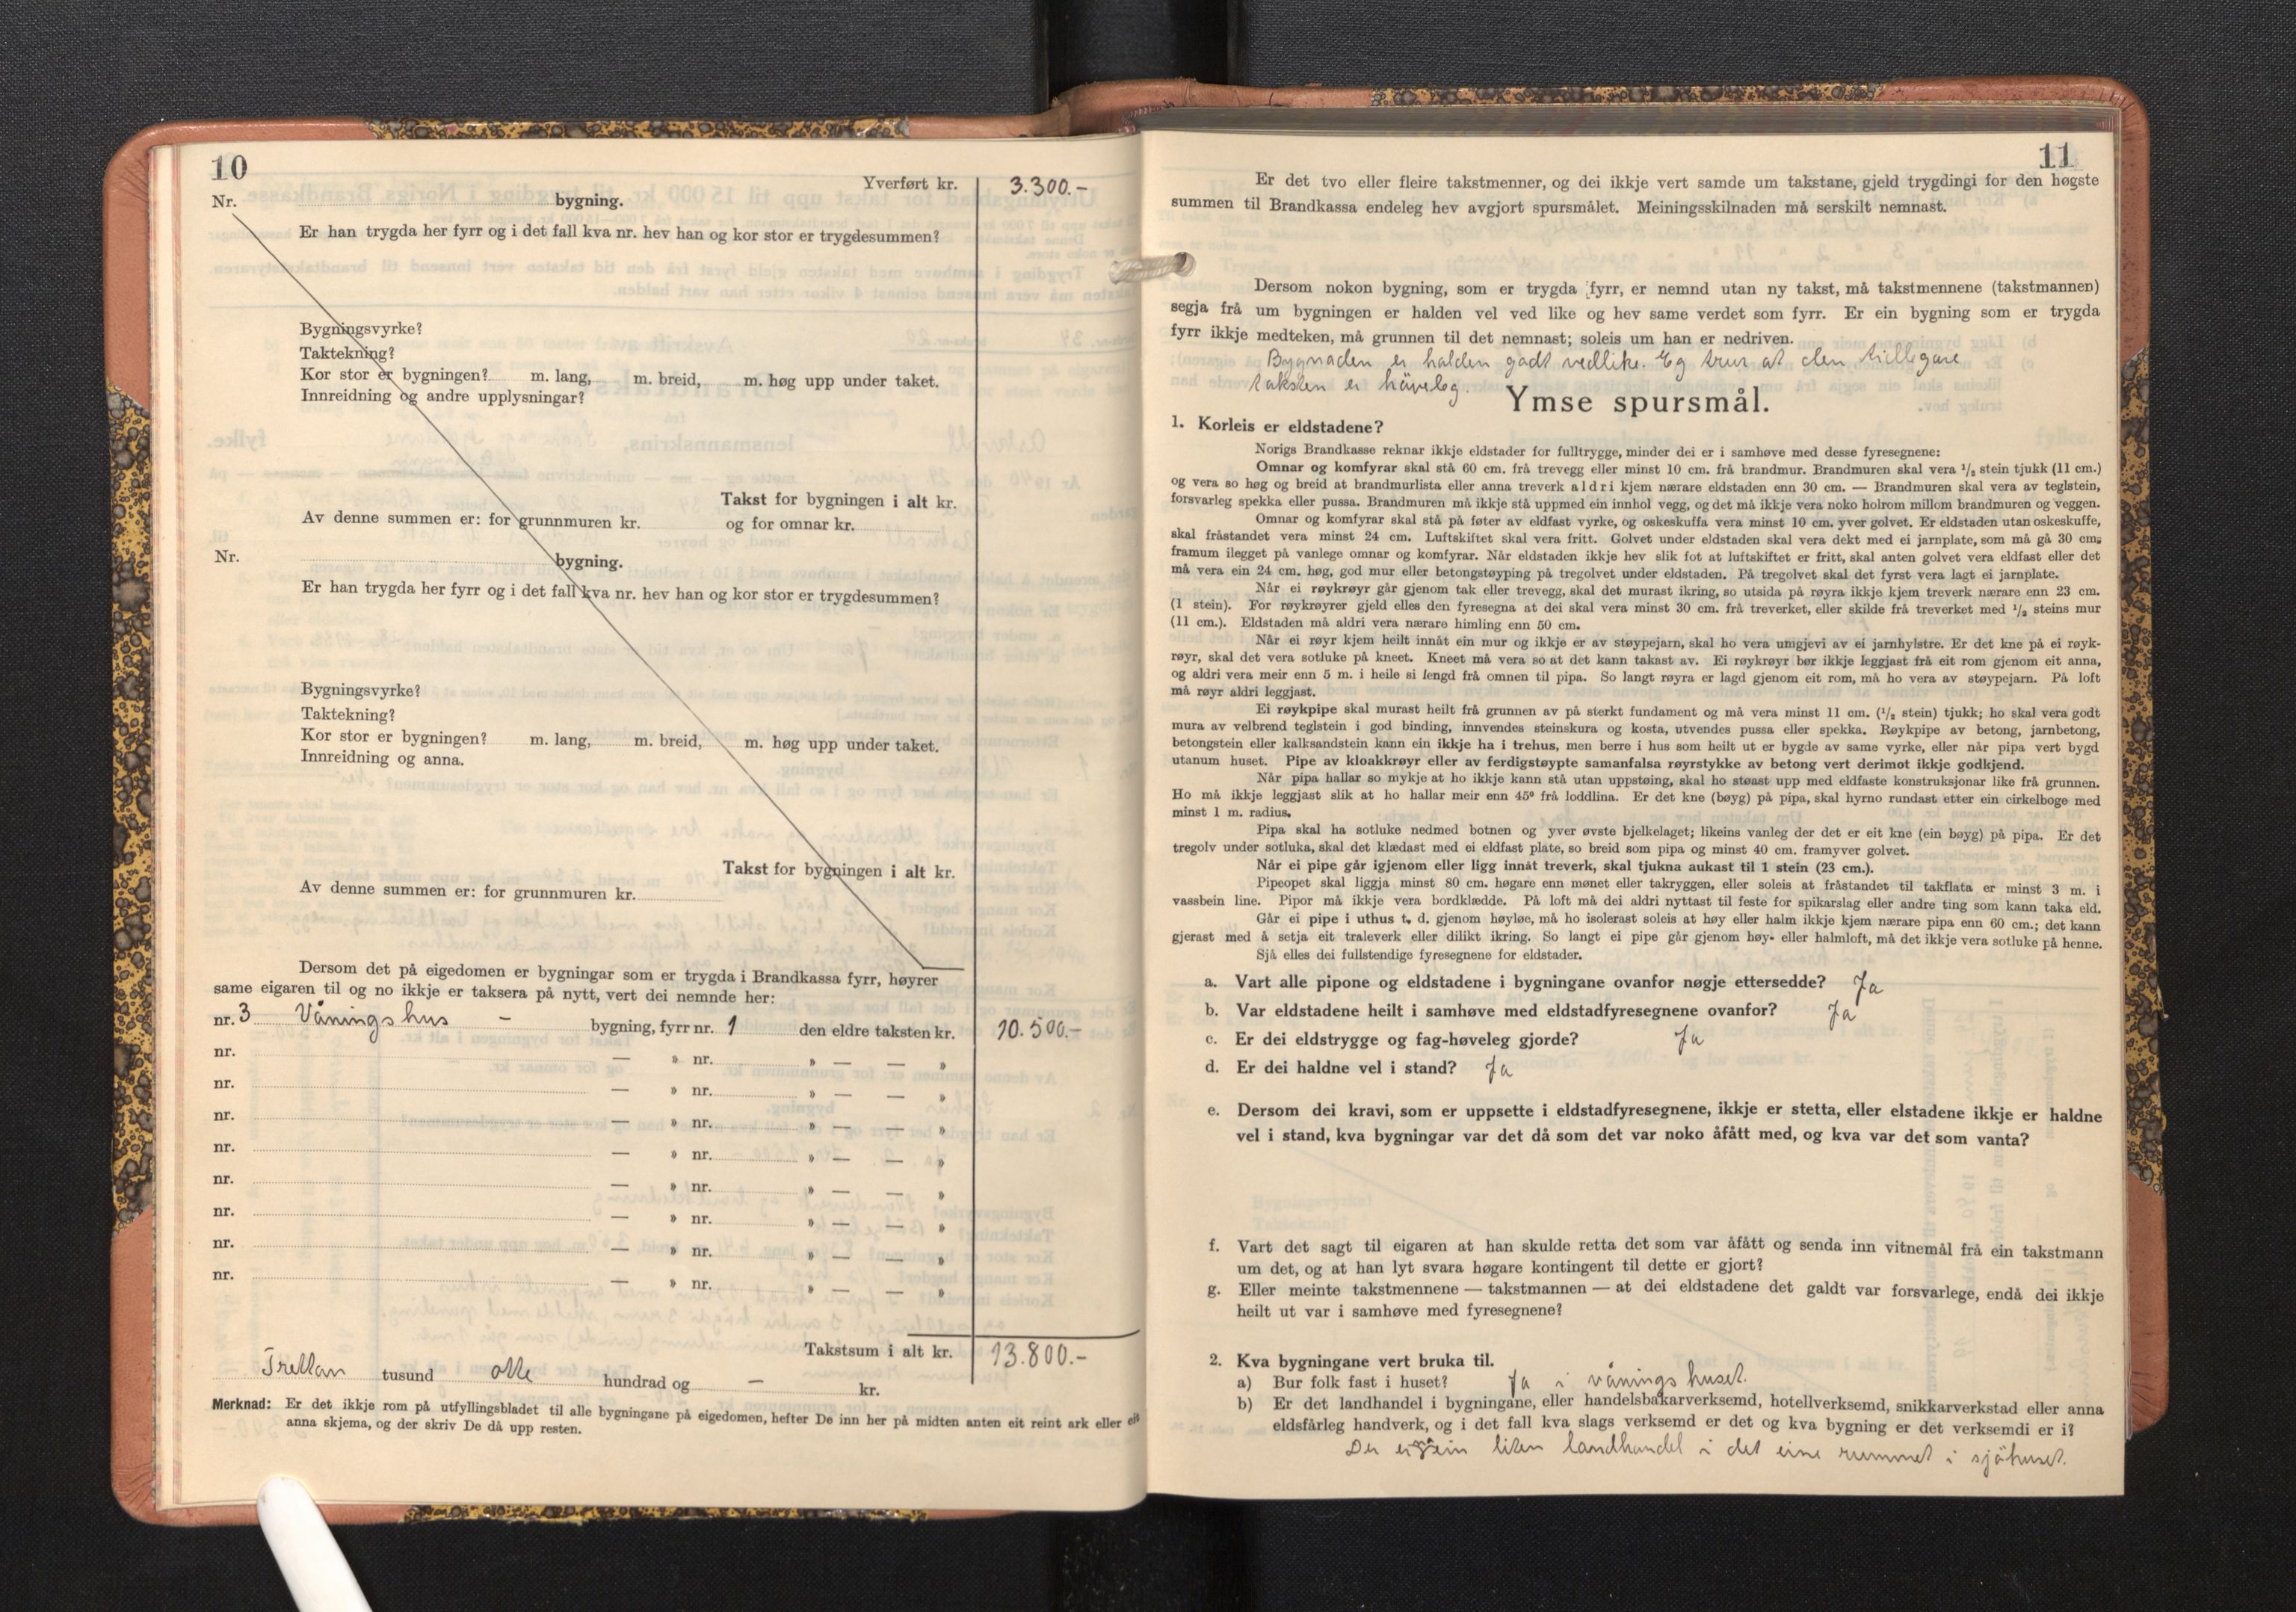 10
Yverført kr. 3.300.-
Nr. bygning.
Er han trygda her fyrr og i det fall kva nr. hev han og kor stor er trygdesummen?
Bygningsvyrke?
Taktekning?
Kor stor er bygningen? m. lang, m. breid, m. høg upp under taket.
Innreidning og andre upplysningar?
Takst for bygningen i alt kr.
Av denne summen er: for grunnmuren kr. og for omnar kr.
Nr. bygning.
Er han trygda her fyrr og i det fall kva nr. hev han og kor stor er trygdesummen?
Bygningsvyrke?
Taktekning?
Kor stor er bygningen? m. lang, m. breid, m. høg upp under taket.
Innreidning og anna.
Takst for bygningen i alt kr.
Av denne summen er: for grunnmuren kr.
Dersom det på eigedomen er bygningar som er trygda i Brandkassa fyrr, høyrer
same eigaren til og no ikkje er taksera på nytt, vert dei nemnde her:
nr. 3 Våningshus - bygning, fyrr nr. 1 den eldre taksten kr. 10.500.-
nr. — » nr. » — — »
nr. — » nr. » — — »
nr. — » nr. » — — »
nr. — » nr. » — — »
nr. — » nr. » — — »
nr. — » nr. » — — »
nr. — » nr. » — — »
nr. — » nr. » — — »
Takstsum i alt kr. 13.800.-
Trettan tusund otte hundrad og - kr.
Merknad: Er det ikkje rom på utfyllingsbladet til alle bygningane på eigedomen, hefter De inn her på midten anten eit reint ark eller eit
anna skjema, og der skriv De då upp resten.
11
Er det tvo eller fleire takstmenner, og dei ikkje vert samde um takstane, gjeld trygdingi for den høgste
summen til Brandkassa endeleg hev avgjort spursmålet. Meiningsskilnaden må serskilt nemnast.
Dersom nokon bygning, som er trygda fyrr, er nemnd utan ny takst, må takstmennene (takstmannen)
segja frå um bygningen er halden vel ved like og hev same verdet som fyrr. Er ein bygning som er trygda
fyrr ikkje medteken, må grunnen til det nemnast; soleis um han er nedriven.
Bygnaden er halden godt vedlike. Eg trur at den tidlegare
taksten er høveleg.
Ymse spursmål.
1. Korleis er eldstadene?
Norigs Brandkasse reknar ikkje eldstader for fulltrygge, minder dei er i samhøve med desse fyresegnene:
Omnar og komfyrar skal stå 60 cm. frå trevegg eller minst 10 cm. frå brandmur. Brandmuren skal vera ½ stein tjukk (11 cm.)
og vera so høg og breid at brandmurlista eller anna treverk aldri kjem nærare eldstaden enn 30 cm. — Brandmuren skal vera av teglstein,
forsvarleg spekka eller pussa. Brandmuren må ikkje stå uppmed ein innhol vegg, og det må ikkje vera noko holrom millom brandmuren og veggen.
Omnar og komfyrar skal stå på føter av eldfast vyrke, og oskeskuffa vera minst 10 cm. yver golvet. Er eldstaden utan oskeskuffe,
skal fråstandet vera minst 24 cm. Luftskiftet skal vera fritt. Golvet under eldstaden skal vera dekt med ei jarnplate, som må gå 30 cm.
framum ilegget på vanlege omnar og komfyrar. Når eldstaden ikkje hev slik fot at luftskiftet er fritt, skal anten golvet vera eldfast eller det
må vera ein 24 cm. høg, god mur eller betongstøyping på tregolvet under eldstaden. På tregolvet skal det fyrst vera lagt ei jarnplate.
Når ei røykrøyr går gjenom tak eller trevegg, skal det murast ikring, so utsida på røyra ikkje kjem treverk nærare enn 23 cm.
(1 stein). For røykrøyrer gjeld elles den fyresegna at dei skal vera minst 30 cm. frå treverket, eller skilde frå treverket med ½ steins mur
(11 cm.). Eldstaden må aldri vera nærare himling enn 50 cm.
Når ei røyr kjem heilt innåt ein mur og ikkje er av støypejarn, skal ho vera umgjevi av ei jarnhylstre. Er det kne på ei røyk-
røyr, skal det vera sotluke på kneet. Kneet må vera so at det kann takast av. Ei røykrøyr bør ikkje leggjast frå eit rom gjenom eit anna,
og aldri vera meir enn 5 m. i heile si lengd frå omnen til pipa. So langt røyra er lagd gjenom eit rom, må ho vera av støypejarn. På loft
må røyr aldri leggjast.
Ei røykpipe skal murast heilt frå grunnen av på sterkt fundament og må vera minst 11 cm. (½ stein) tjukk; ho skal vera godt
mura av velbrend teglstein i god binding, innvendes steinskura og kosta, utvendes pussa eller spekka. Røykpipe av betong, jarnbetong,
betongstein eller kalksandstein kann ein ikkje ha i trehus, men berre i hus som heilt ut er bygde av same vyrke, eller når pipa vert bygd
utanum huset. Pipe av kloakkrøyr eller av ferdigstøypte samanfalsa røyrstykke av betong vert derimot ikkje godkjend.
Når pipa hallar so mykje at ho ikkje kann stå utan uppstøing, skal ho støast upp med eldfaste konstruksjonar like frå grunnen.
Ho må ikkje leggjast slik at ho hallar meir enn 45° frå loddlina. Er det kne (bøyg) på pipa, skal hyrno rundast etter ein cirkelboge med
minst 1 m. radius.
Pipa skal ha sotluke nedmed botnen og yver øvste bjelkelaget; likeins vanleg der det er eit kne (ein bøyg) på pipa. Er det
tregolv under sotluka, skal det klædast med ei eldfast plate, so breid som pipa og minst 40 cm. framyver golvet.
Når ei pipe går igjenom eller ligg innåt treverk, skal tjukna aukast til 1 stein (23 cm.).
Pipeopet skal liggja minst 80 cm. høgare enn mønet eller takryggen, eller soleis at fråstandet til takflata er minst 3 m. i
vassbein line. Pipor må ikkje vera bordklædde. På loft må dei aldri nyttast til feste for spikarslag eller andre ting som kann taka eld.
Går ei pipe i uthus t. d. gjenom høyløe, må ho isolerast soleis at høy eller halm ikkje kjem nærare pipa enn 60 cm.; det kann
gjerast med å setja eit traleverk eller dilikt ikring. So langt ei pipe går gjenom høy- eller halmloft, må det ikkje vera sotluke på henne.
Sjå elles dei fullstendige fyresegnene for eldstader.
a. Vart alle pipone og eldstadene i bygningane ovanfor nøgje ettersedde? Ja
b. Var eldstadene heilt i samhøve med eldstadfyresegnene ovanfor? Ja
c. Er dei eldstrygge og fag-høveleg gjorde? Ja
d. Er dei haldne vel i stand? Ja
e. Dersom dei kravi, som er uppsette i eldstadfyresegnene, ikkje er stetta, eller elstadene ikkje er haldne
vel i stand, kva bygningar var det då som det var noko åfått med, og kva var det som vanta?
f. Vart det sagt til eigaren at han skulde retta det som var åfått og senda inn vitnemål frå ein takstmann
um det, og at han lyt svara høgare kontingent til dette er gjort?
g. Eller meinte takstmennene — takstmannen — at dei eldstadene det galdt var forsvarlege, endå dei ikkje
heilt ut var i samhøve med fyresegnene?
2. Kva bygningane vert bruka til.
a) Bur folk fast i huset? Ja i våningshuset.
b) Er det landhandel i bygningane, eller handelsbakarverksemd, hotellverksemd, snikkarverkstad eller anna
eldsfårleg handverk, og i det fall kva slags verksemd er det og kva bygning er det verksemdi er i?
Der er ein liten landhandel i det eine rummet i sjøhuset.